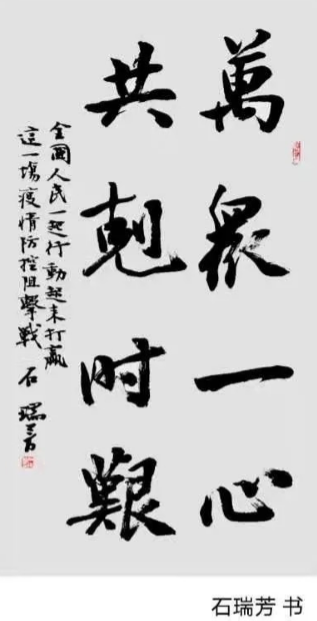 萬眾一心
共剋时艱
全國人民一起行動起来打赢
這一場疫情防控阻擊戰 石瑞芳
石瑞芳 书